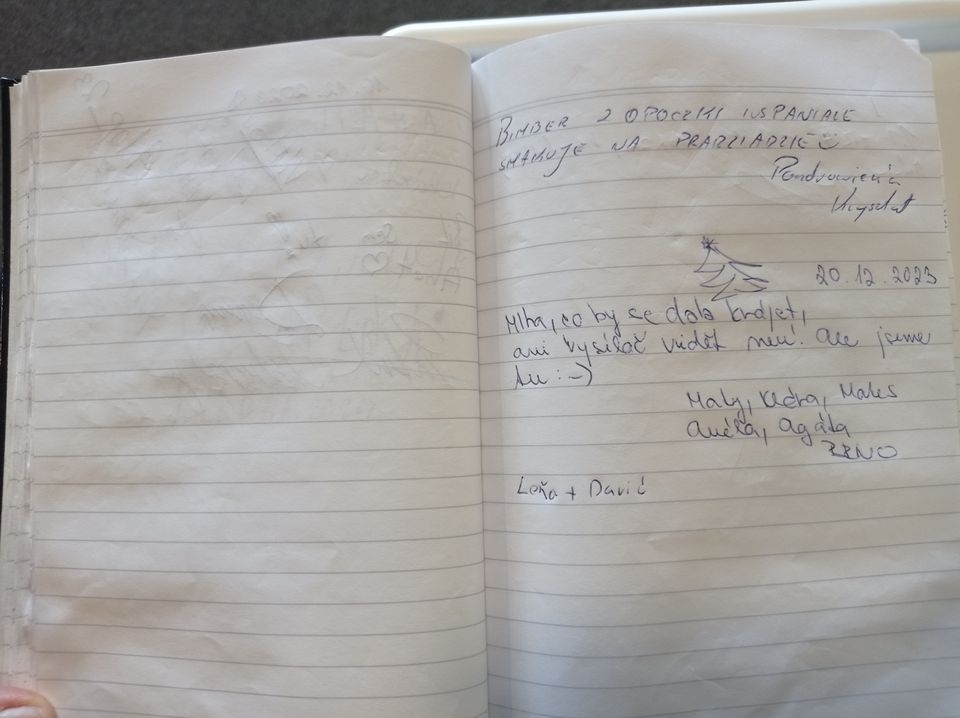 BIMBER Z OPOCZKI WSPANIALE
SMAKUJE NA PRADZIADZIE
20.12.2023
Mlha, co by se dala krájet,
ani vysílač vidět není. Ale jsme
tu :-)
Maty, Kačka, Mates
Anéžka, Agáta
BRNO
Leňa + David